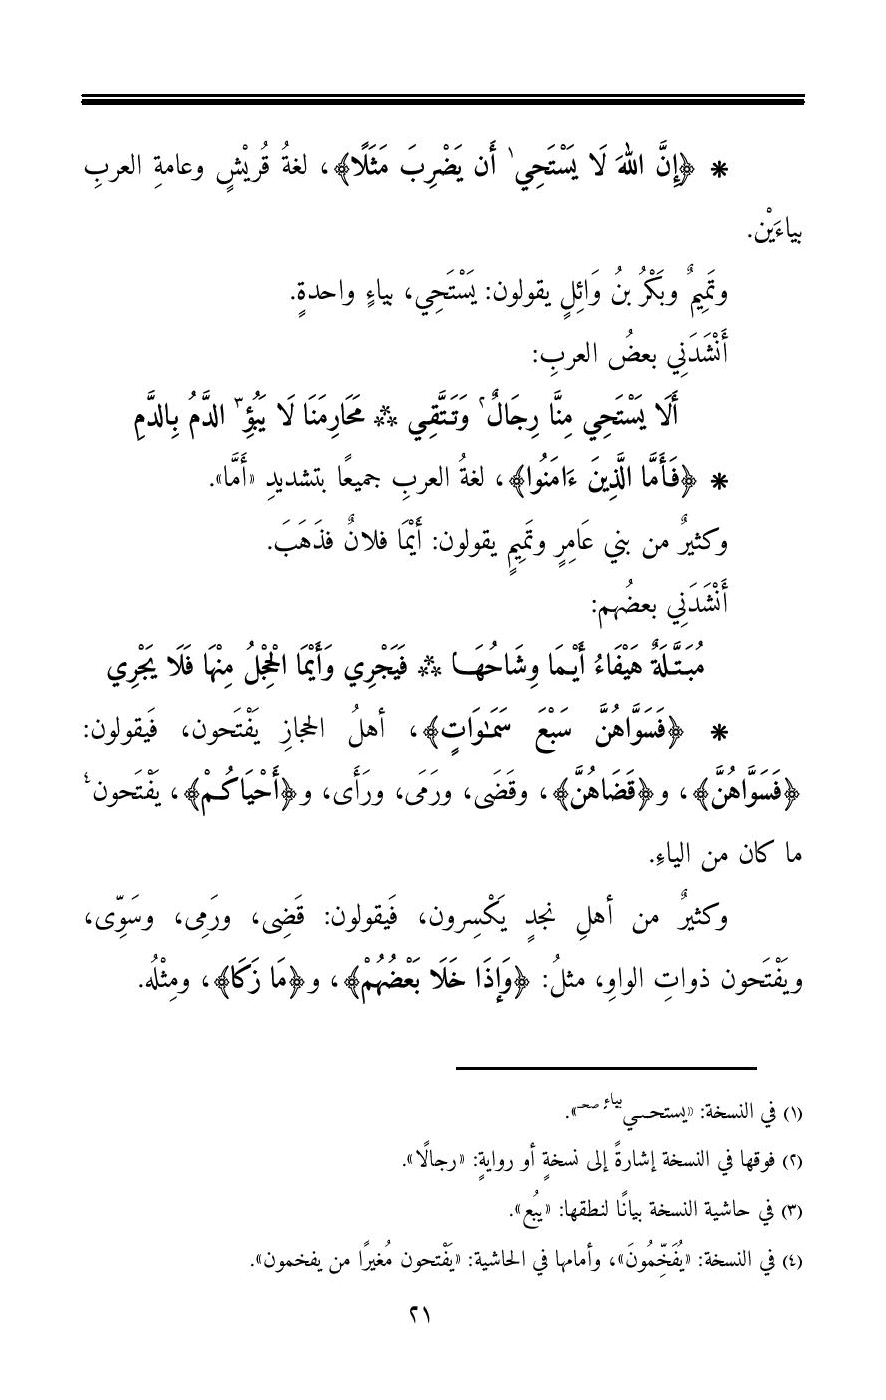 * ﴿إِنَّ اللهَ لَا يَسْتَحِي١ أَن يَضْرِبَ مَثَلًا﴾، لغةُ قُريْشٍ وعامةِ العربِ
بياءَيْن.
وتَمِيمٌ وبَكْرُ بنُ وَائِلٍ يقولون: يَسْتَحِي، بياءٍ واحدةٍ.
أَنْشَدَنِي بعضُ العربِ:
أَلَا يَسْتَحِي مِنَّا رِجَالٌ٢ وَتَتَّقِي ** مَحَارِمَنَا لَا يَبُؤِ٣ الدَّمُ بِالدَّمِ
* ﴿فَأَمَّا الَّذِينَ ءَامَنُوا﴾، لغةُ العربِ جميعًا بتشديدِ «أَمَّا».
وكثيرٌ من بني عَامِرٍ وتَمِيمٍ يقولون: أَيْمَا فلانٌ فذَهَبَ.
أَنْشَدَنِي بعضُهم:
مُبَتَّلَةٌ هَيْفَاءُ أَيْمَا وِشَاحُهَا ** فَيَجْرِي وَأَيْمَا الْحِجْلُ مِنْهَا فَلَا يَجْرِي
* ﴿فَسَوَّاهُنَّ سَبْعَ سَمَـٰوَاتٍ﴾، أهلُ الحجازِ يَفْتَحون، فَيقولون:
﴿فَسَوَّاهُنَّ﴾، و﴿قَضَاهُنَّ﴾، وقَضَى، ورَمَى، ورَأَى، و﴿أَحْيَاكُمْ﴾، يَفْتَحون٤
ما كان من الياءِ.
وكثيرٌ من أهلِ نجدٍ يَكْسِرون، فَيقولون: قَضِى، ورَمِى، وسَوِّى،
ويَفْتَحون ذواتِ الواوِ، مثلُ: ﴿وَإِذَا خَلَا بَعْضُهُمْ﴾، و﴿مَا زَكَا﴾، ومِثْلُه.
(١) في النسخة: «يستحـي بياءٍ صحـ».
(٢) فوقها في النسخة إشارةً إلى نسخةٍ أو روايةٍ: «رجالًا».
(٣) في حاشية النسخة بيانًا لنطقها: «يبُع».
(٤) في النسخة: «يُفَخِّمُونَ»، وأمامها في الحاشية: «يَفْتحون مُغيرًا من يفخمون».
٢١